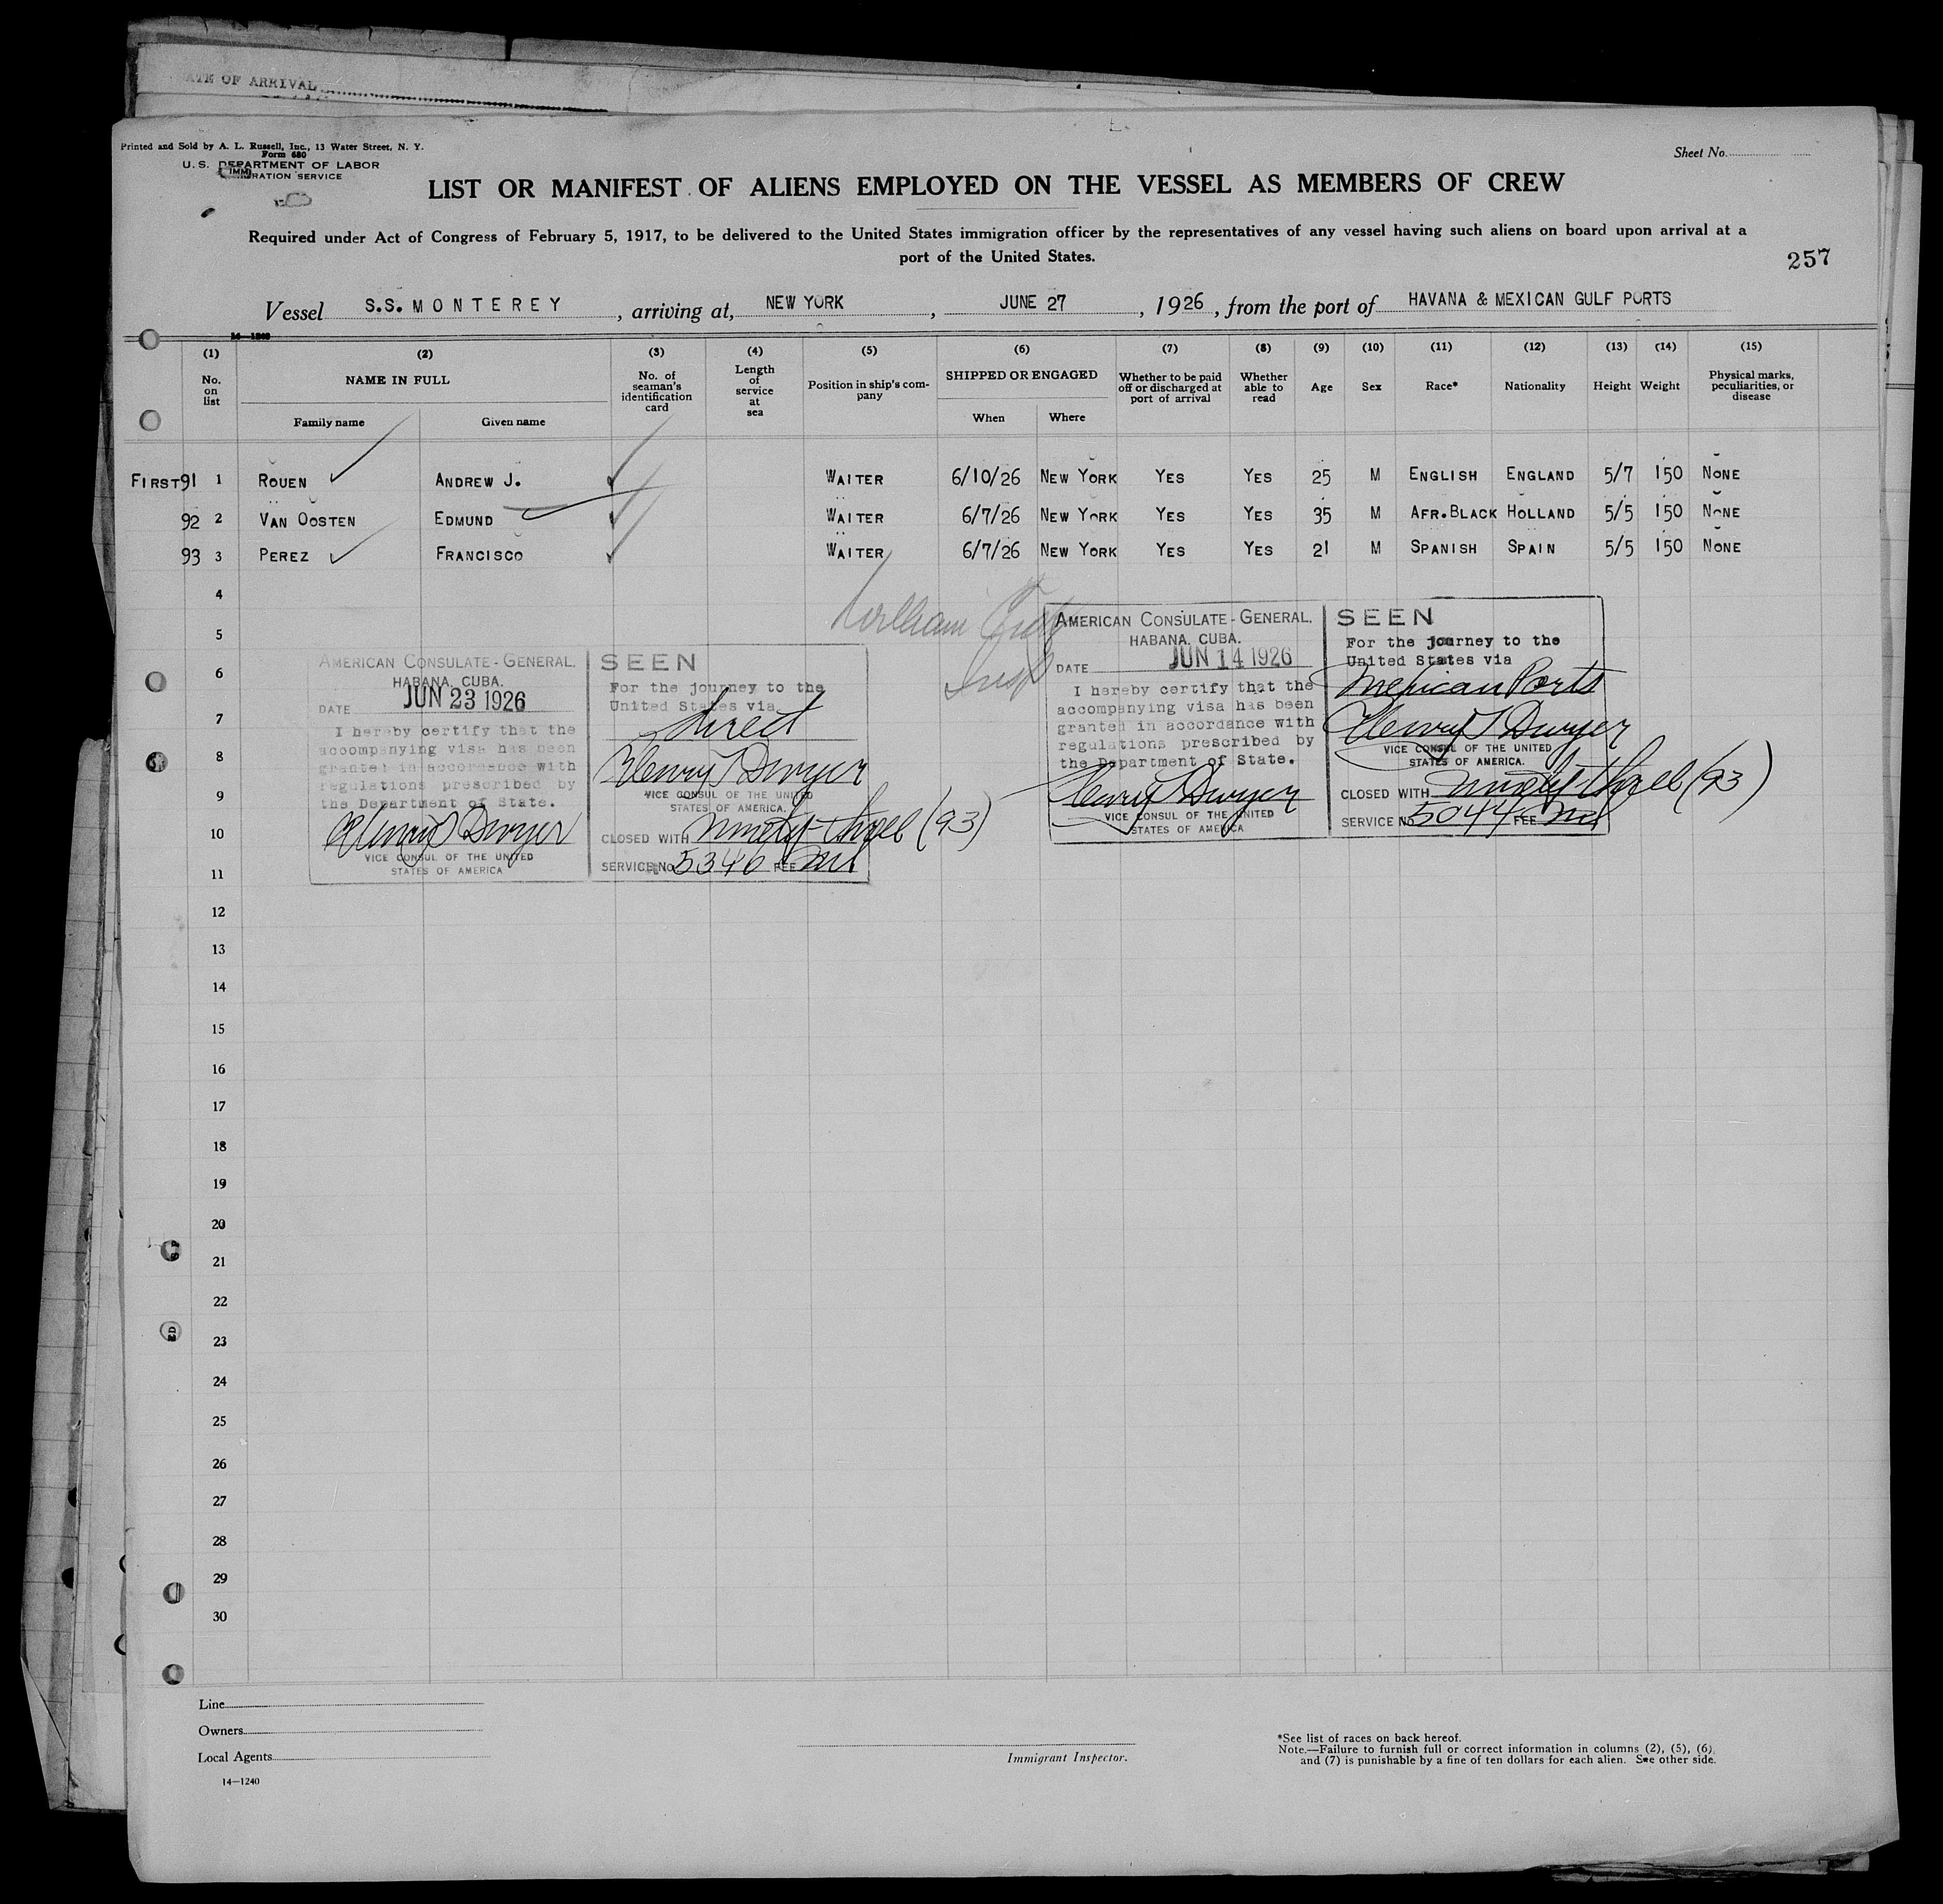 ATE OF ARRIVAL
Printed and Sold by A. L. Russell, Inc., 13 Water Street, N. Y.
Form 680
U. S. DEPARTMENT OF LABOR
IMMIGRATION SERVICE
Sheet No.
LIST OR MANIFEST OF ALIENS EMPLOYED ON THE VESSEL AS MEMBERS OF CREW
Required under Act of Congress of February 5, 1917, to be delivered to the United States immigration officer by the representatives of any vessel having such aliens on board upon arrival at a
port of the United States.
257
Vessel S.S. MONTEREY, arriving at, NEW YORK, JUNE 27, 1926, from the port of HAVANA & MEXICAN GULF PORTS
14—1240
(1) (2) (3) (4) (5) (6) (7) (8) (9) (10) (11) (12) (13) (14) (15)
No. on list NAME IN FULL Family name Given name No. of seaman's identification card Length of service at sea Position in ship's company SHIPPED OR ENGAGED When Where Whether to be paid off or discharged at port of arrival Whether able to read Age Sex Race* Nationality Height Weight Physical marks, peculiarities, or disease
FIRST 91 1 ROUEN ANDREW J. WAITER 6/10/26 NEW YORK YES YES 25 M ENGLISH ENGLAND 5/7 150 NONE
92 2 VAN OOSTEN EDMUND WAITER 6/7/26 NEW YORK YES YES 35 M AFR.BLACK HOLLAND 5/5 150 NONE
93 3 PEREZ FRANCISCO WAITER 6/7/26 NEW YORK YES YES 21 M SPANISH SPAIN 5/5 150 NONE
4
5
6
7
8
9
10
11
12
13
14
15
16
17
18
19
20
21
22
23
24
25
26
27
28
29
30
William
Insp
AMERICAN CONSULATE-GENERAL,
HABANA, CUBA.
DATE JUN 23 1926
I hereby certify that the
accompanying visa has been
granted in accordance with
regulations prescribed by
the Department of State.
Henry T Dwyer
VICE CONSUL OF THE UNITED
STATES OF AMERICA
SEEN
For the journey to the
United States via
direct
Henry T Dwyer
VICE CONSUL OF THE UNITED
STATES OF AMERICA.
CLOSED WITH ninety-three (93)
SERVICE No. 5346 FEE nil
AMERICAN CONSULATE-GENERAL,
HABANA, CUBA.
DATE JUN 14 1926
I hereby certify that the
accompanying visa has been
granted in accordance with
regulations prescribed by
the Department of State.
Henry T Dwyer
VICE CONSUL OF THE UNITED
STATES OF AMERICA
SEEN
For the journey to the
United States via
Mexican Ports
Henry T Dwyer
VICE CONSUL OF THE UNITED
STATES OF AMERICA.
CLOSED WITH ninety-three (93)
SERVICE No. 5044 FEE nil
Line
Owners
Local Agents
14—1240
Immigrant Inspector.
*See list of races on back hereof.
Note.—Failure to furnish full or correct information in columns (2), (5), (6),
and (7) is punishable by a fine of ten dollars for each alien. See other side.